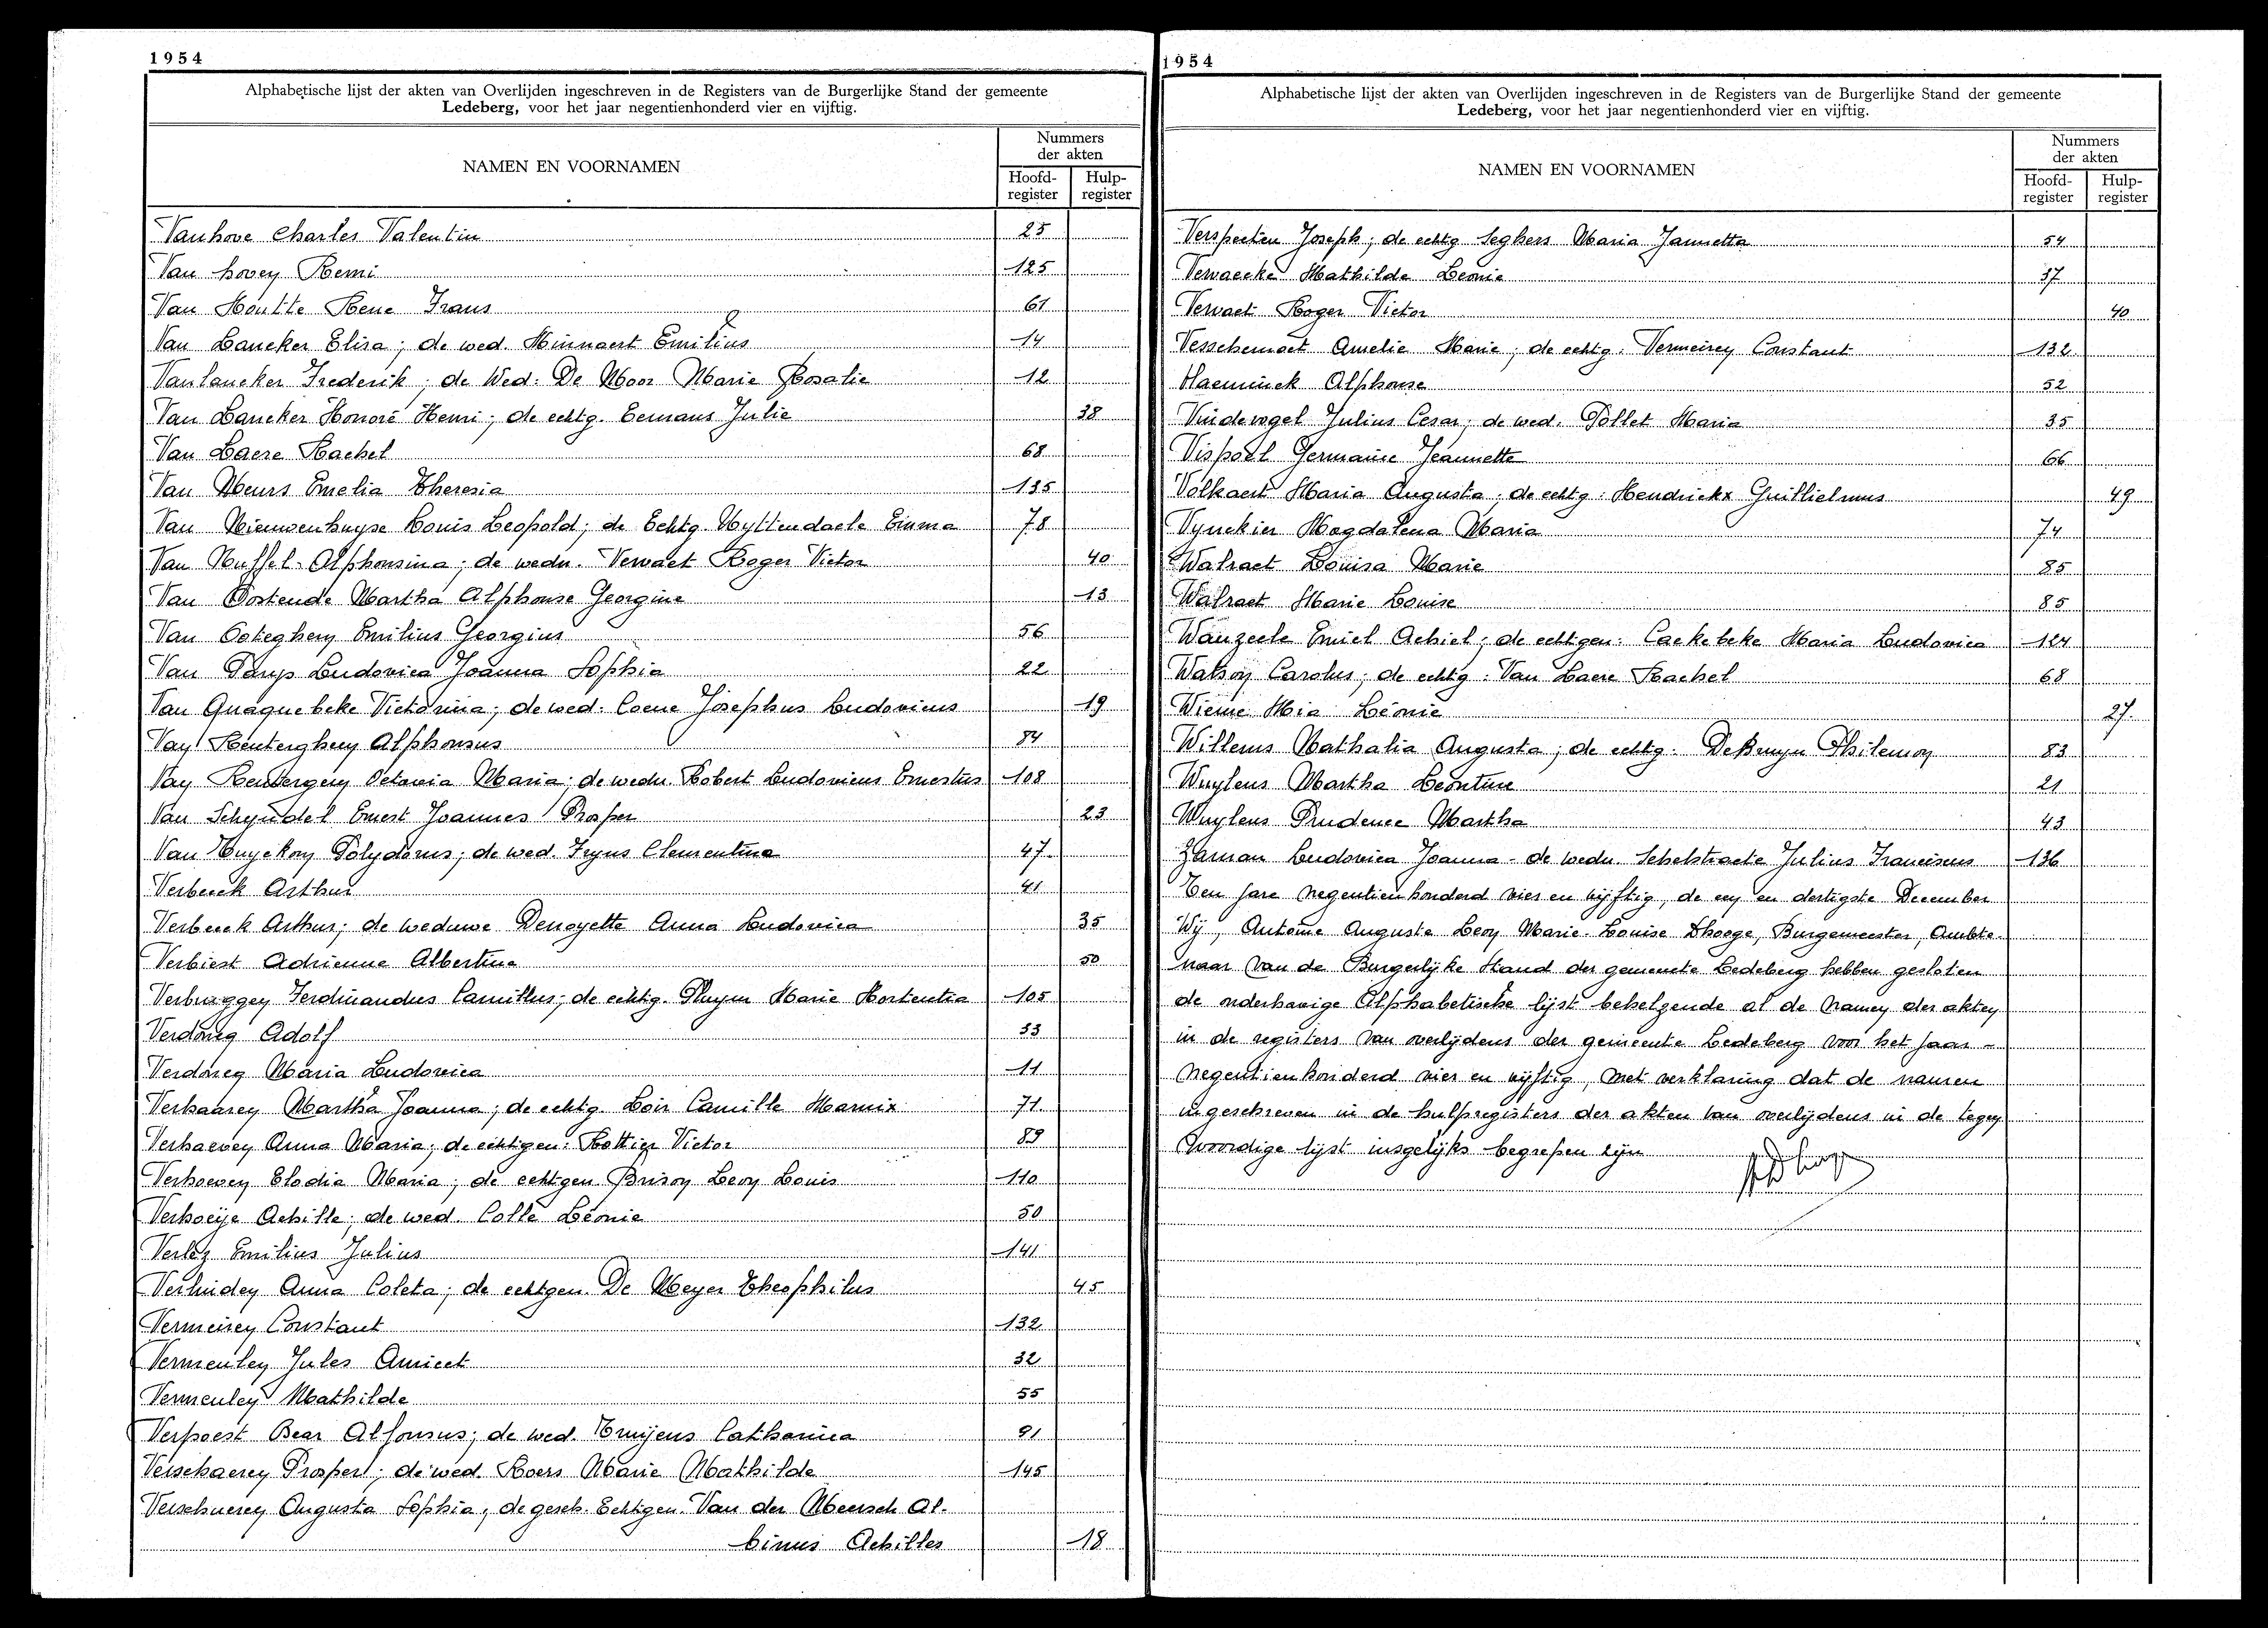 1954
Alphabetische lijst der akten van Overlijden ingeschreven in de Registers van de Burgerlijke Stand der gemeente
Ledeberg, voor het jaar negentienhonderd vier en vijftig.
NAMEN EN VOORNAMEN
Nummers
der akten
Hoofd-
register
Hulp-
register
Vanhove Charles Valentin 25
Van hovey Remi 125
Van Houtte Rene Frans 61
Van Lancker Elisa; de wed. Minnaert Emilius 14
Vanlancker Frederik; de Wed: De Moor Marie Rosalie 12
Van Lancker Honoré Henri; de echtg. Eemans Julie 38
Van Laere Rachel 68
Van Meurs Emelia Theresia 135
Van Nieuwenhuyse Louis Leopold; de Echtg. Uyttendaele Emma 78
Van Nuffel Alphonsina; de wedn. Vervaet Roger Victor 40
Van Oostende Martha Alphonse Georgine 13
Van Ooteghem Emilius Georgius 56
Van Parys Ludovica Joanna Sophia 22
Van Quaquebeke Victorina; de wed. Coene Josephus Ludovicus 19
Van Renterghem Alphonsus 84
Van Rentergem Octavia Maria; de wedn. Robert Ludovicus Ernestus 108
Van Scheyndel Ernest Joannes Prosper 23
Van Tuyckom Polydorus; de wed. Feyns Clementina 47
Verbeeck Arthur 41
Verbeeck Arthur; de weduwe Denoyette Anna Ludovica 35
Verbiest Adrienne Albertine 50
Verbruggen Ferdinandus Camillus; de echtg. Pluym Marie Hortentia 105
Verdonig Adolf 33
Verdoreg Maria Ludovica 11
Verhaaren Martha Joanna; de echtg. Loir Camille Marnix 71
Verhaeven Anna Maria; de echtgen: Rottier Victor 89
Verhoeven Elodia Maria; de echtgen Brison Leon Louis 110
Verhoeije Achille; de wed. Colle Léonie 50
Verlez Emilius Julius 141
Verlinden Anna Coleta; de echtgen. De Meyer Theophilus 45
Vermeiren Constant 132
Vermeulen Jules Amicet 32
Vermeulen Mathilde 55
Verpoest Bear Alfonsus; de wed. Truijens Catharina 91
Verschaeren Prosper; de wed. Roers Marie Mathilde 145
Verschueren Augusta Sophia; de gesch. Echtgen. Van der Meersch Al-
binus Achilles 18
1954
Alphabetische lijst der akten van Overlijden ingeschreven in de Registers van de Burgerlijke Stand der gemeente
Ledeberg, voor het jaar negentienhonderd vier en vijftig.
NAMEN EN VOORNAMEN
Nummers
der akten
Hoofd-
register
Hulp-
register
Verspeeten Joseph; de echtg Seghers Maria Jannetta 54
Vervaecke Mathilde Leonie 37
Vervaet Roger Victor 40
Vesschemoet Amelie Marie; de echtg. Vermeirey Constant 132
Vlaeminck Alphonse 52
Vuidevogel Julius Cesar; de wed. Pollet Maria 35
Vispoel Germaine Jeannette 66
Volkaert Maria Augusta; de echtg: Hendrickx Guillielmus 49
Vynckier Magdalena Maria 74
Walraet Louisa Marie 85
Walraet Marie Louise 85
Wanzeele Emiel Achiel; de echtgen: Caekebeke Maria Ludovica 124
Watson Carolus; de echtg: Van Laere Rachel 68
Wieme Mia Léonie 27
Willems Nathalia Augusta; de echtg. DeBruyn Philemon 83
Wuylens Martha Leontine 21
Wuylens Prudence Martha 43
Zaman Ludovica Joanna - de wedn. Schelstraete Julius Franciscus 136
Ten jare negentien honderd vier en vijftig, de een en dertigste December
Wij, Antoine Auguste Leon Marie-Louise Dhoege, Burgemeester, Ambte-
naar van de Burgerlijke Stand der gemeente Ledeberg hebben gesloten
de onderhavige Alphabetische lijst behelzende al de namen der akten
in de registers van overlijdens der gemeente Ledeberg voor het jaar -
negentienhonderd vier en vijftig, met verklaring dat de namen
ingeschreven in de hulpregisters der akten van overlijdens in de tegen
woordige lijst insgelijks begrepen zijn